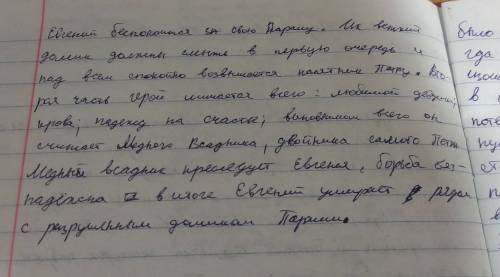 Евгений беспокоился за свою Парашу. Их ветхий
домик должны смыть в первую очередь и
над всем спокойно возвышается памятник Петру. Вто-
рая часть герой лишается всего: любимой девушки;
крова; надежд на счастье; виновником всего он
считает Медного Всадника, двойника самого Петра
Медный всадник преследует Евгения, борьба без-
надёжна в итоге Евгений умирает рядом
с разрушенным домиком Параши.
было
гда
изош
в с
поте
пу
ет
п
в